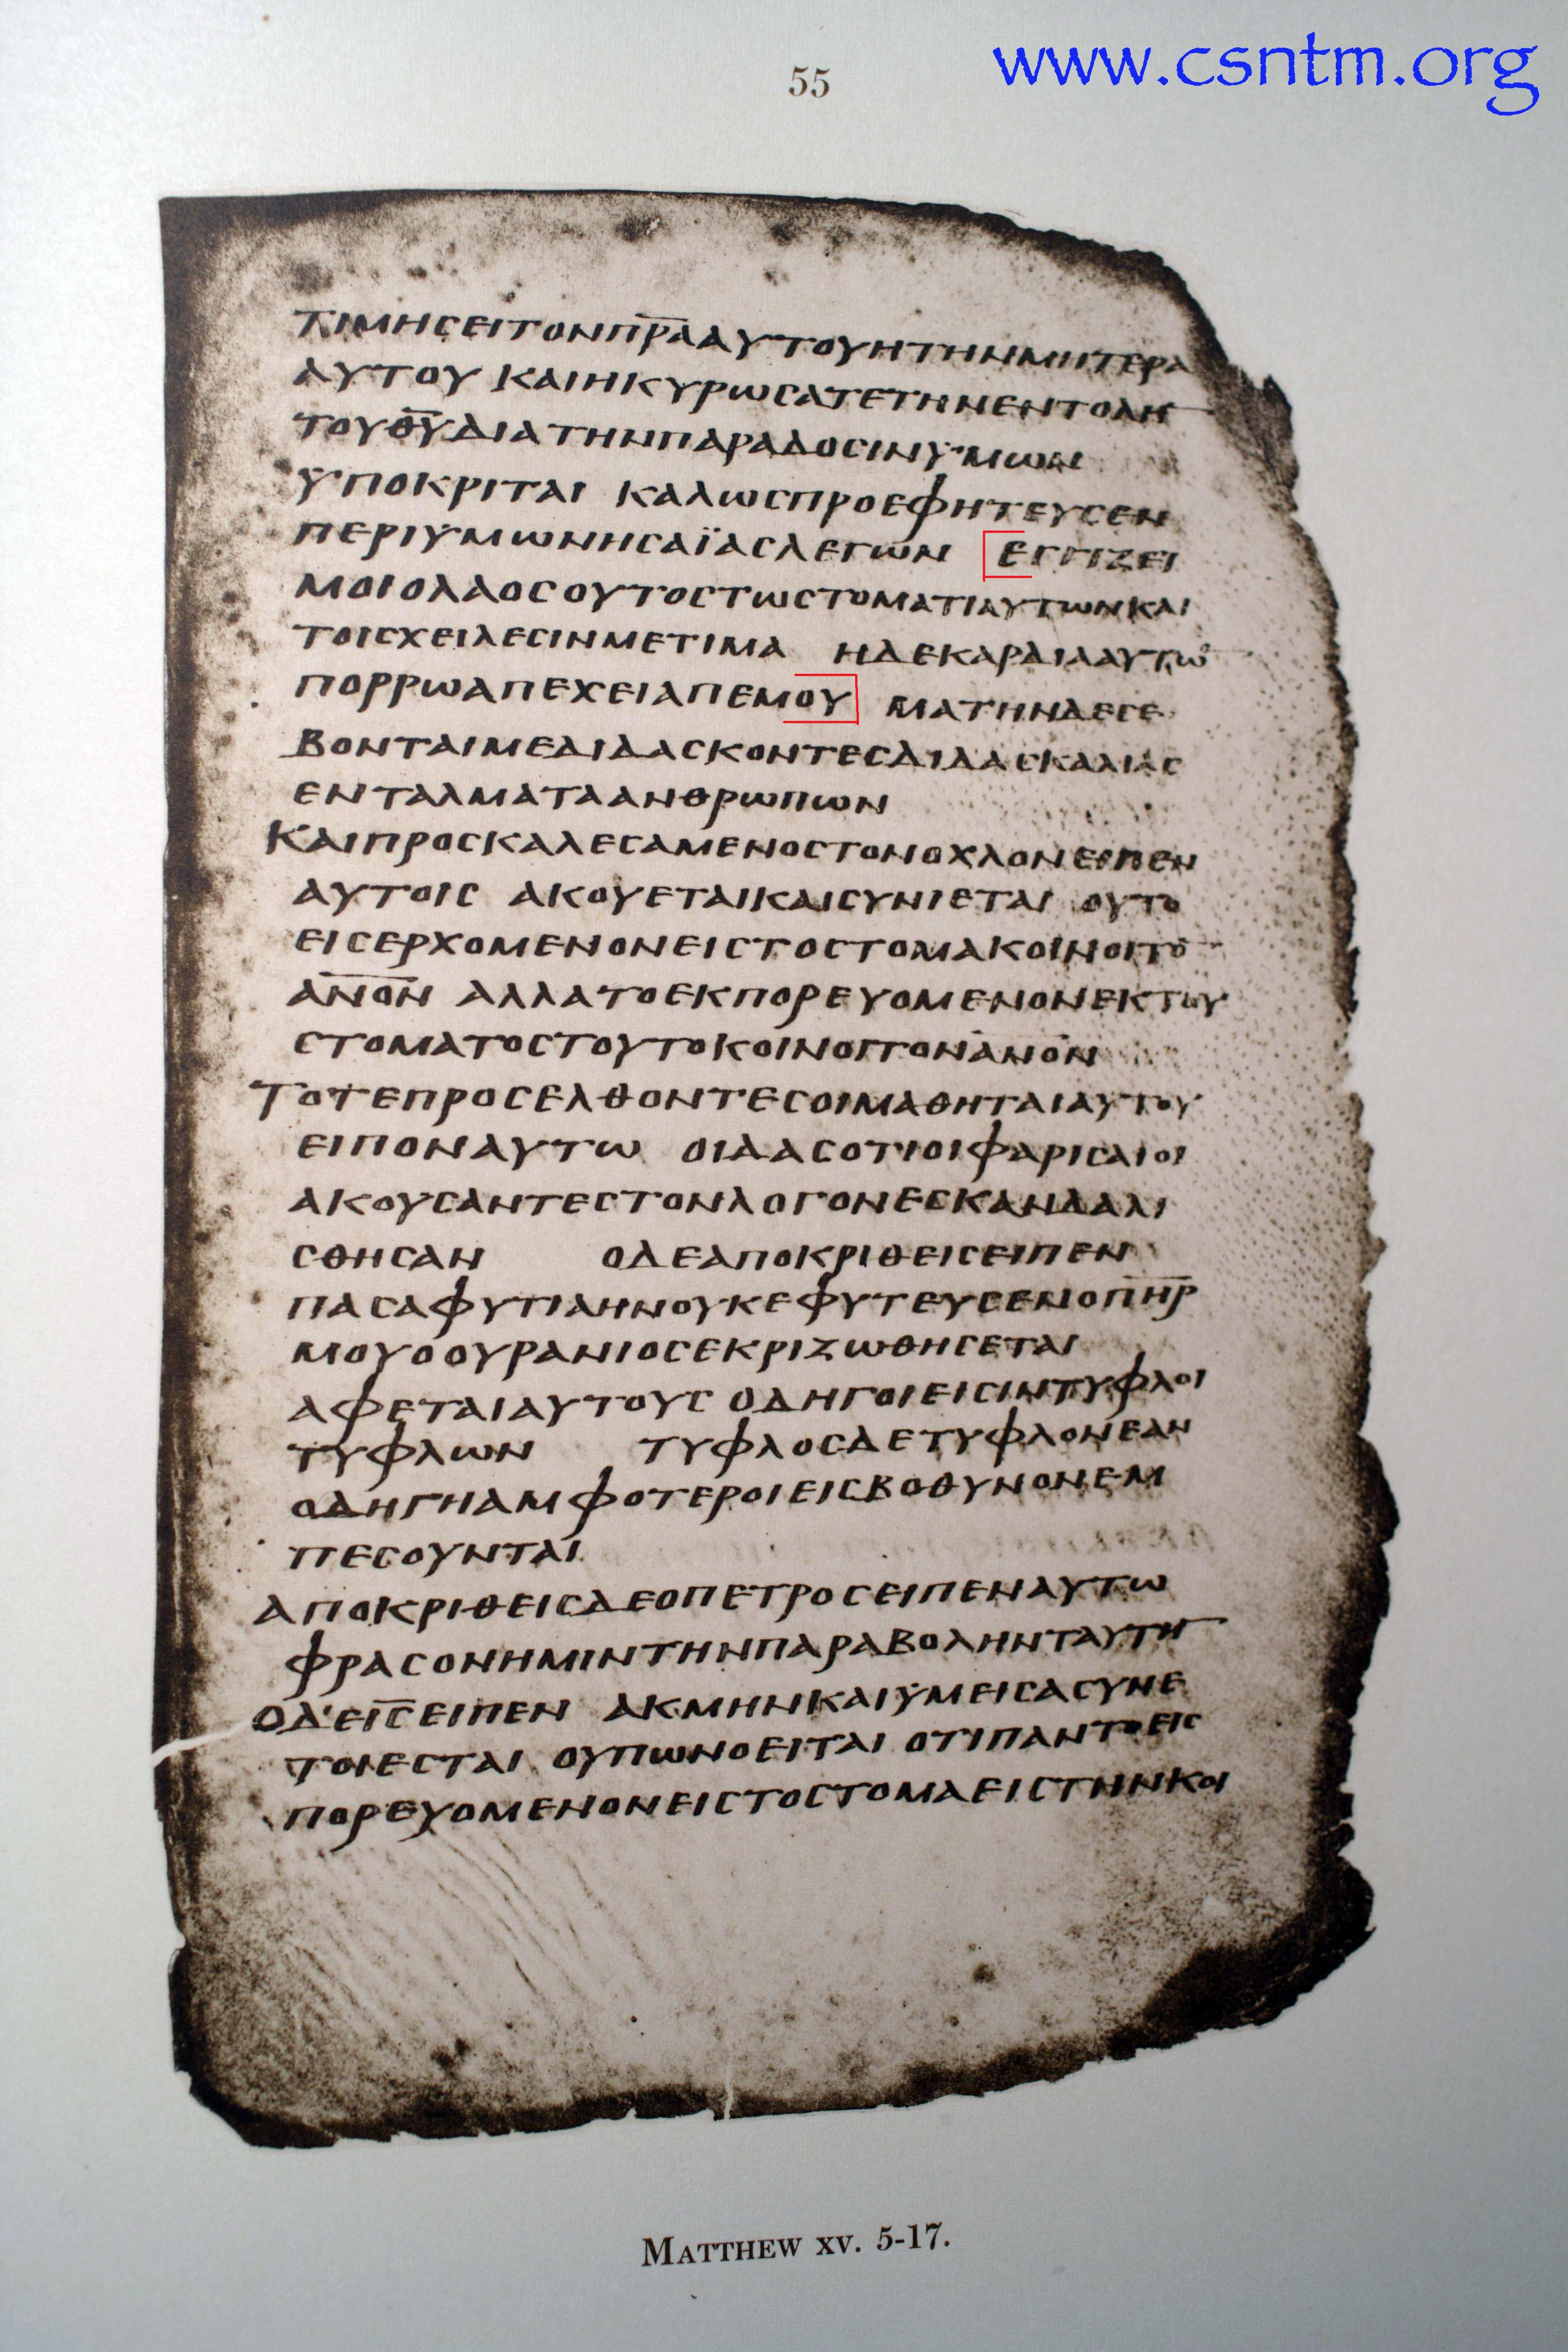 55
www.csntm.org
ΤΙΜΗCΕΙΤΟΝΠ̅Ρ̅Α̅ΑΥΤΟΥΗΤΗΝΜΗΤΕΡΑ
ΑΥΤΟΥ ΚΑΙΗΚΥΡΩCΑΤΕΤΗΝΕΝΤΟΛΗ̅
ΤΟΥΘ̅Υ̅ΔΙΑΤΗΝΠΑΡΑΔΟCΙΝΥΜΩΝ
ΥΠΟΚΡΙΤΑΙ ΚΑΛΩCΠΡΟΕΦΗΤΕΥCΕΝ
ΠΕΡΙΥΜΩΝΗCΑΪΑCΛΕΓΩΝ ΕΓΓΙΖΕΙ
ΜΟΙΟΛΑΟCΟΥΤΟCΤΩCΤΟΜΑΤΙΑΥΤΩΝΚΑΙ
ΤΟΙCΧΕΙΛΕCΙΝΜΕΤΙΜΑ ΗΔΕΚΑΡΔΙΑΑΥΤΩ̅
ΠΟΡΡΩΑΠΕΧΕΙΑΠΕΜΟΥ ΜΑΤΗΝΔΕCΕ
ΒΟΝΤΑΙΜΕΔΙΔΑCΚΟΝΤΕCΔΙΔΑCΚΑΛΙΑC
ΕΝΤΑΛΜΑΤΑΑΝΘΡΩΠΩΝ
ΚΑΙΠΡΟCΚΑΛΕCΑΜΕΝΟCΤΟΝΟΧΛΟΝΕΙΠΕΝ
ΑΥΤΟΙC ΑΚΟΥΕΤΑΙΚΑΙCΥΝΙΕΤΑΙ ΟΥΤΟ
ΕΙCΕΡΧΟΜΕΝΟΝΕΙCΤΟCΤΟΜΑΚΟΙΝΟΙΤΟ̅
Α̅Ν̅Ο̅Ν̅ ΑΛΛΑΤΟΕΚΠΟΡΕΥΟΜΕΝΟΝΕΚΤΟΥ
CΤΟΜΑΤΟCΤΟΥΤΟΚΟΙΝΟΙΤΟΝΑ̅Ν̅Ο̅Ν̅
ΤΟΤΕΠΡΟCΕΛΘΟΝΤΕCΟΙΜΑΘΗΤΑΙΑΥΤΟΥ
ΕΙΠΟΝΑΥΤΩ ΟΙΔΑCΟΤΙΟΙΦΑΡΙCΑΙΟΙ
ΑΚΟΥCΑΝΤΕCΤΟΝΛΟΓΟΝΕCΚΑΝΔΑΛΙ
CΘΗCΑΝ ΟΔΕΑΠΟΚΡΙΘΕΙCΕΙΠΕΝ
ΠΑCΑΦΥΤΙΑΗΝΟΥΚΕΦΥΤΕΥCΕΝΟΠ̅Η̅Ρ̅
ΜΟΥΟΟΥΡΑΝΙΟCΕΚΡΙΖΩΘΗCΕΤΑΙ
ΑΦΕΤΑΙΑΥΤΟΥC ΟΔΗΓΟΙΕΙCΙΝΤΥΦΛΟΙ
ΤΥΦΛΩΝ ΤΥΦΛΟCΔΕΤΥΦΛΟΝΕΑΝ
ΟΔΗΓΗΑΜΦΟΤΕΡΟΙΕΙCΒΟΘΥΝΟΝΕΜ
ΠΕCΟΥΝΤΑΙ
ΑΠΟΚΡΙΘΕΙCΔΕΟΠΕΤΡΟCΕΙΠΕΝΑΥΤΩ
ΦΡΑCΟΝΗΜΙΝΤΗΝΠΑΡΑΒΟΛΗΝΤΑΥΤΗ̅
ΟΔΕΙ̅C̅ΕΙΠΕΝ ΑΚΜΗΝΚΑΙΫΜΕΙCΑCΥΝΕ
ΤΟΙΕCΤΑΙ ΟΥΠΩΝΟΕΙΤΑΙ ΟΤΙΠΑΝΤΟΕΙC
ΠΟΡΕΥΟΜΕΝΟΝΕΙCΤΟCΤΟΜΑΕΙCΤΗΝΚΟΙ
MATTHEW XV. 5-17.